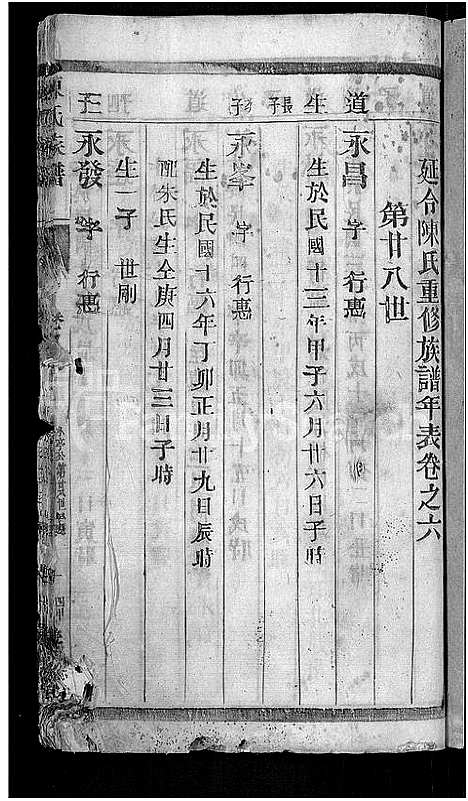 延令陳氏重修族譜年表卷之六
第廿八世
道生長子
永昌 字 行惠
生於民國十三年甲子六月廿六日子時
次子
永峯 字 行惠
生於民國十六年丁卯正月廿九日辰時
配朱氏生仝庚四月廿三日子時
生一子 世剛
三子
永發 字 行惠
陳氏族譜